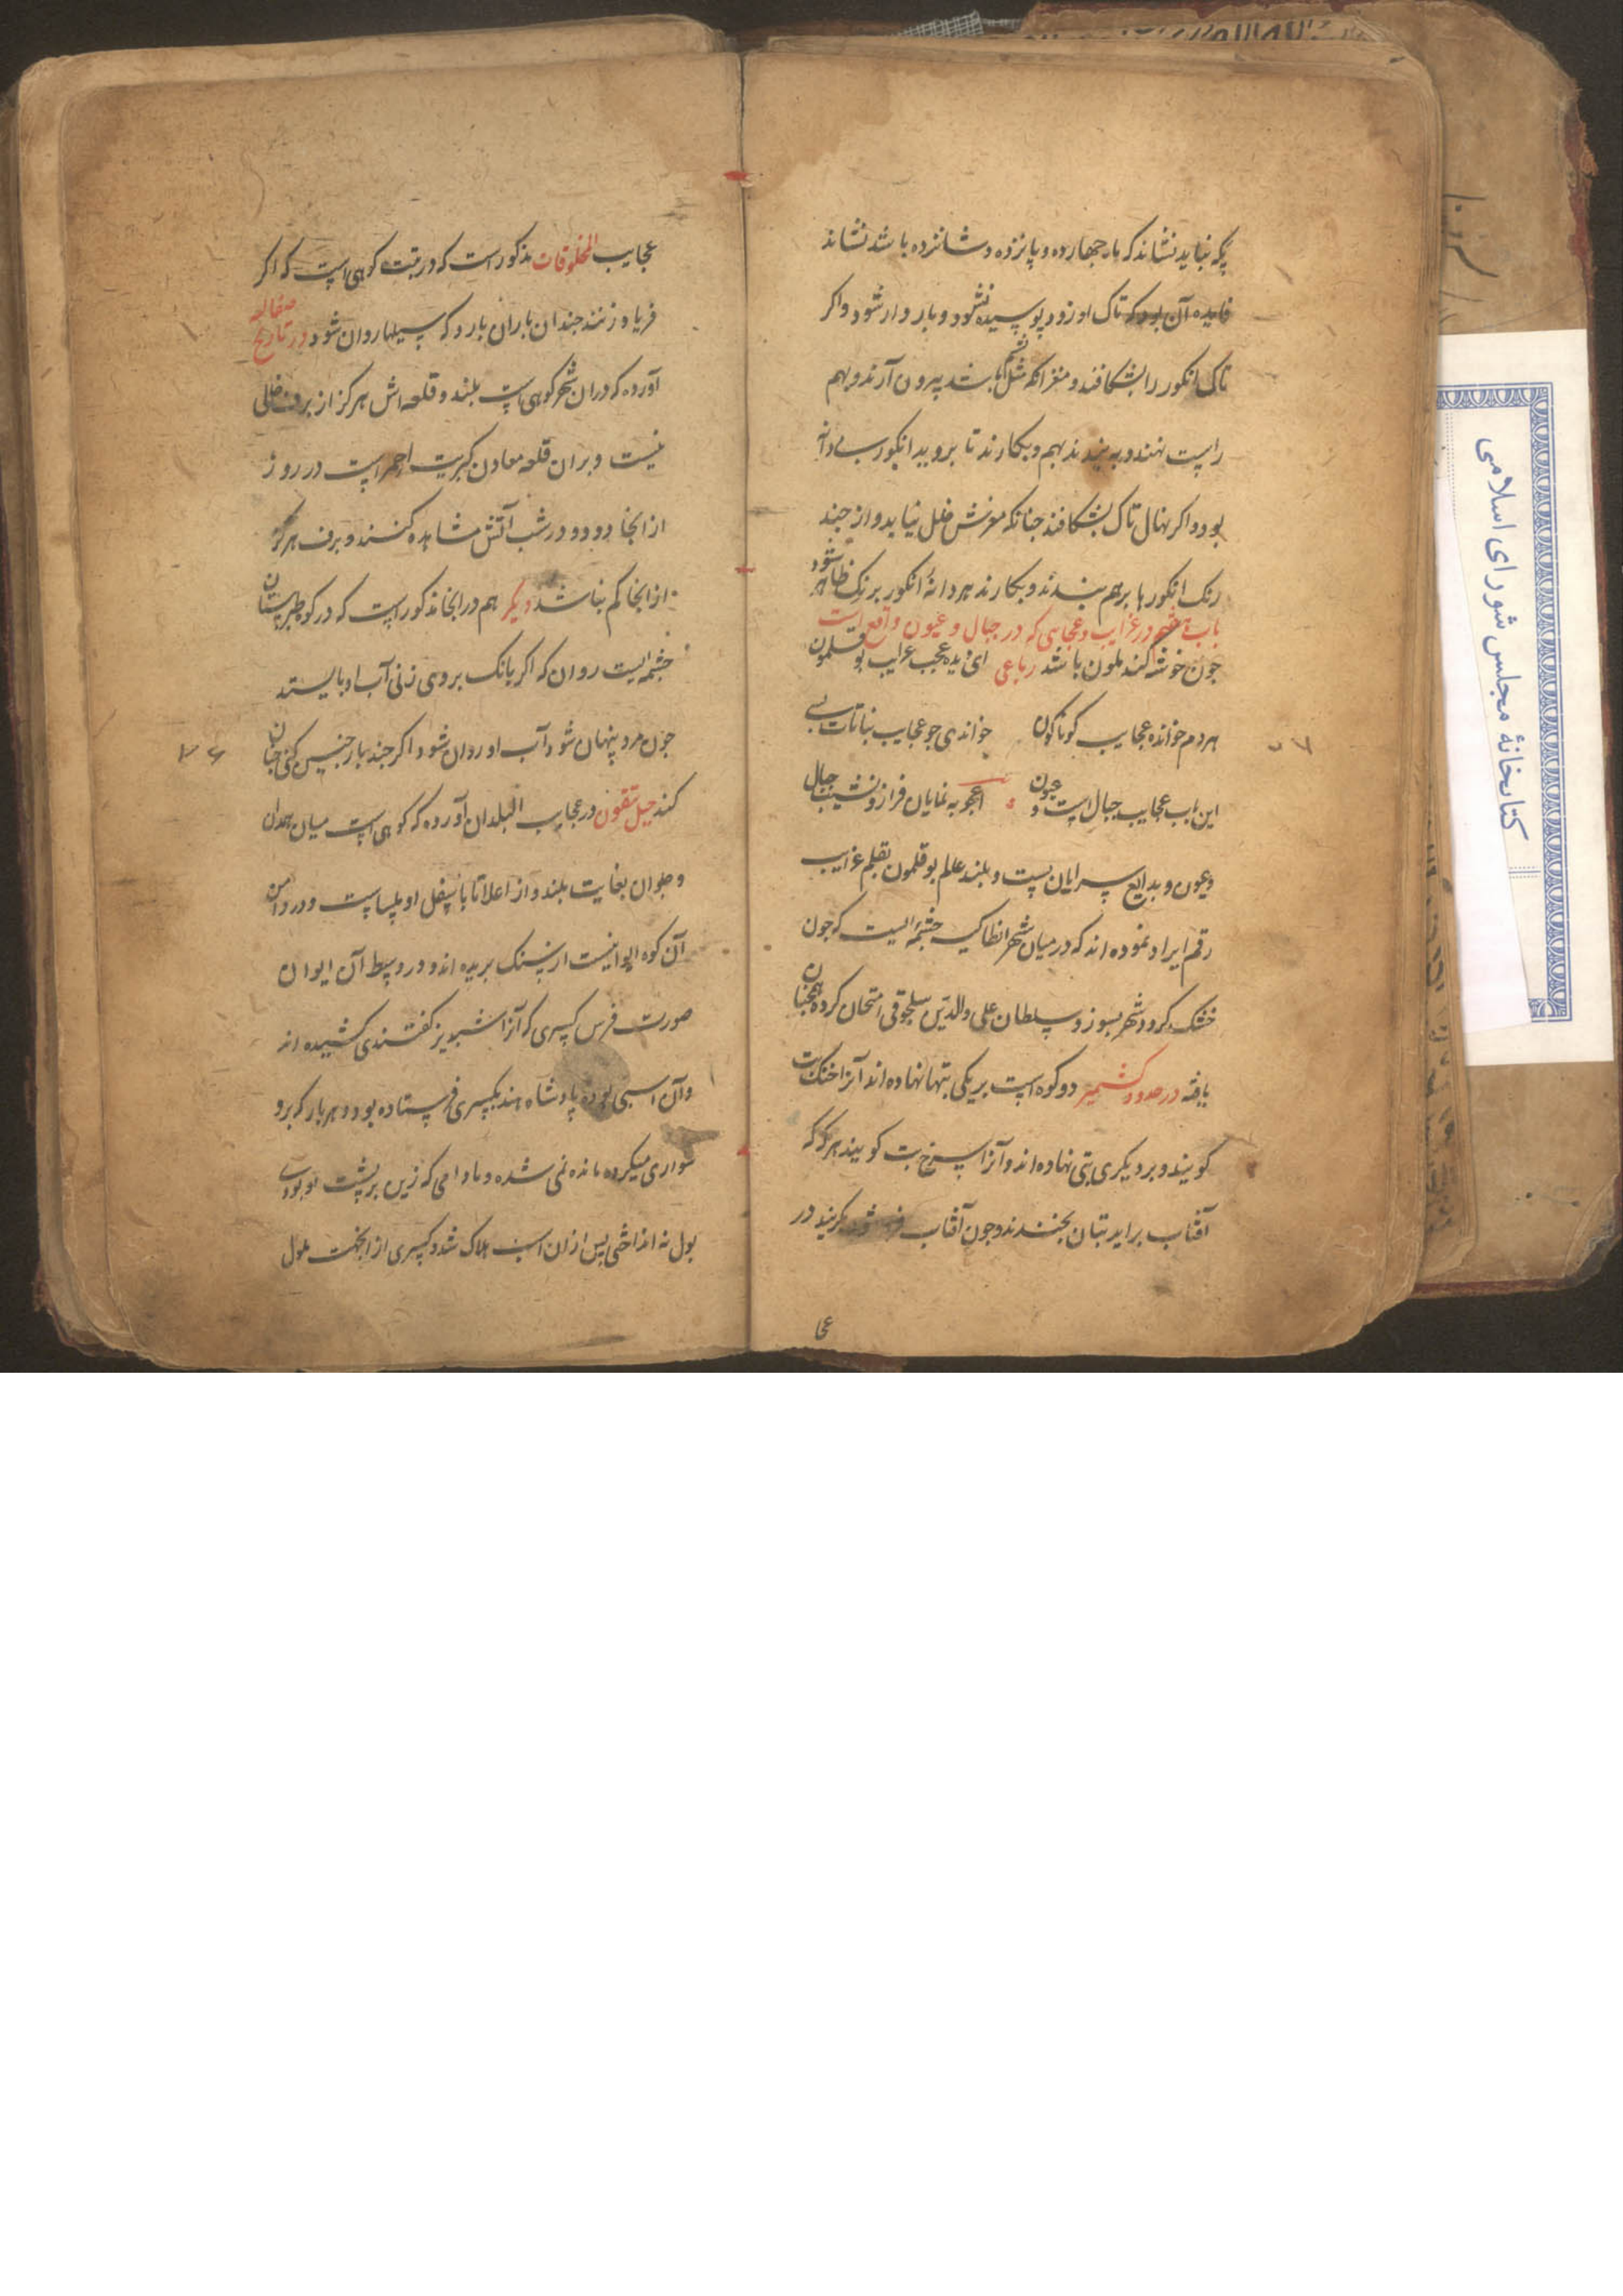 یکه نباید نشاند که بار چهارده و پانزده و شانزده باشد نشاند
فایده آن بود که تاک او زود پوسیده نشود و بار دار شود و اکر
تاک انکور را بشکافند و مغز انکه مثل پشم باشد بیرون آرند و بهم
راست نهند و به بندند بهم و بکارند تا بروید انکور بی دانه
بود و اکر نهال تاک بشکافند جنانکه مغزش خلل نیابد و از جند
رنک انکورها بر هم بندند و بکارند هر دانهٔ انکور برنک ظاهر شود
باب هشتم در غرایب و عجایبی که در جبال و عیون واقع است
جون خوشه کند ملون باشد رباعی ای دیده عجب غرایب بوقلمون
هر دم خوانده عجایب کوناکون خواندی جو عجایب نباتات بسی
این باب عجایب جبال است و عیون اعجوبه نمایان فراز و نشیب جبال
و عیون و بدایع سرایان پست و بلند علم بوقلمون بقلم غرایب
رقم ایراد نموده اند که در میان شهر انطاکیه چشمه ایست که جون
خشک کردد شهر بسوزد و سلطان علی والدین سلجوقی امتحان کرده همجنان
یافته در حدود کشمیر دو کوه است بر یکی بتها نهاده اند آنرا خنک بت
کویند و بر دیکری بتی نهاده اند و آنرا سرخ بت کویند هر که که
آفتاب براید بتان بخندند و جون آفتاب فرو شود بکریند در
عجا
عجایب المخلوقات مذکور است که در تبت کوهی است که اکر
فریاد زنند جندان باران بارد که سیلها روان شود در تاریخ صقالیه
آورده که دران شهر کوهی است بلند و قلعه اش هرکز از برف خالی
نیست و بران قلعه معادن کبریت احمر است در روز
از انجا دود و در شب آتش مشاهده کنند و برف هرکز
از انجا کم نباشد دیکر هم در انجا مذکور است که در کوه طبرستان
جشمه ایست روان که اکر بانک بر وی زنی آب او بایستد
جون مرد پنهان شود آب او روان شود اکر جند بار جنین کنی جنان
کند جبل تقون در عجایب البلدان آورده که کوهی است میان همدان
و حلوان بغایت بلند و از اعلا تا باسفل او ملسا است و در دامن
آن کوه ایوانیست از سنک بریده اند و در وسط آن ایوان
صورت فرس کسری که آنرا شبدیز کفتندی کشیده اند
و آن اسبی بوده پادشاه هند بکسری فرستاده بود و هر بار که برو
سواری میکرده مانده نمی شده و مادامی که زین بر پشت او بودی
بول نه انداختی پس ازان اسب هلاک شد و کسری از انجهت ملول
۳۶
کتابخانهٔ مجلس شورای اسلامی